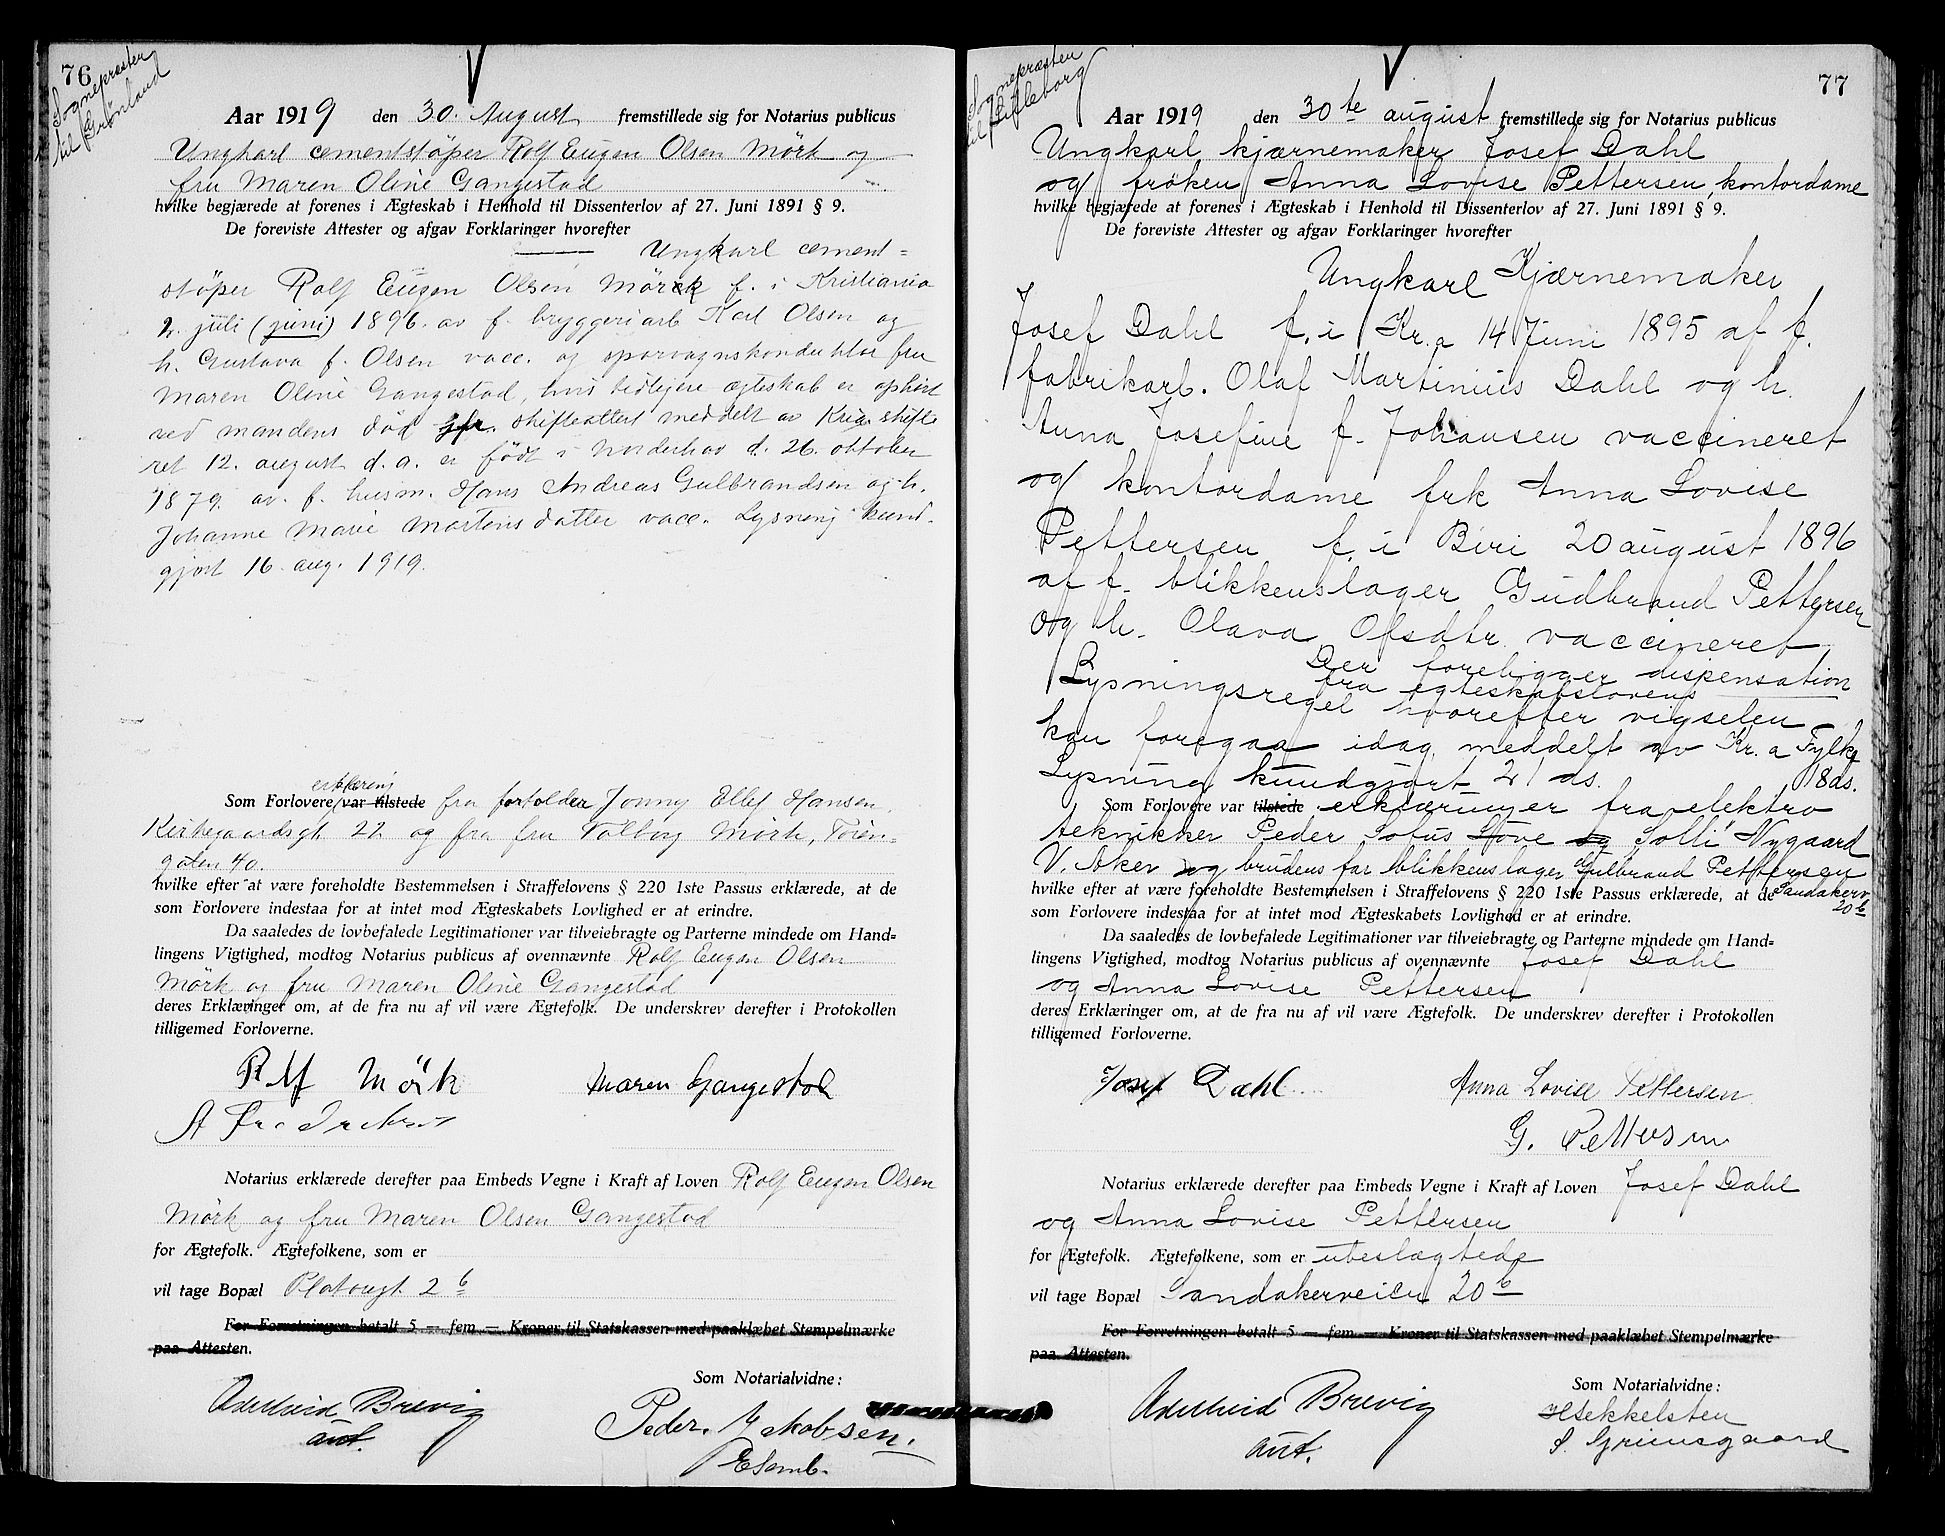 76
Sognepresten
til Grønland
Aar 1919 den 30. August fremstillede sig for Notarius publicus
Ungkarl cementstøper Rolf Eugen Olsen Mörk og
fru Maren Oline Gangestad
hvilke begjærede at forenes i Ægteskab i Henhold til Dissenterlov af 27. Juni 1891 § 9.
De foreviste Attester og afgav Forklaringer hvorefter
Ungkarl cement=
støper Rolf Eugen Olsen Mörk f. i Kristiania
2. juli (juni) 1896. av f. bryggeriarb Karl Olsen og
h. Gustava f. Olsen vacc. og sporvagnskonduktør fru
Maren Oline Gangestad, hvis tidligere ægteskab er ophört
ved mandens död jfr. skifteattest meddelt av Kria skifte
ret 12. august d. a. er födt i Norderhov d. 26. oktober
1879. av. f. husm. Hans Andreas Gulbrandsen og h.
Johanne Marie Martinsdatter vacc. Lysning kund-
gjort 16. aug. 1919.
erklæring
Som Forlovere var tilstede fra forfolder Jonny Ellef Hansen
Kirkegaardsgt. 22 og fra fru Valborg Mörk, Töien-
gaten 40.
hvilke efter at være foreholdte Bestemmelsen i Straffelovens § 220 1ste Passus erklærede, at de
som Forlovere indestaa for at intet mod Ægteskabets Lovlighed er at erindre.
Da saaledes de lovbefalede Legitimationer var tilveiebragte og Parterne mindede om Hand=
lingens Vigtighed, modtog Notarius publicus af ovennævnte Rolf Eugen Olsen
Mörk og fru Maren Oline Gangestad
deres Erklæringer om, at de fra nu af vil være Ægtefolk. De underskrev derefter i Protokollen
tilligemed Forloverne.
Rolf Mörk Maren Gangestad
Notarius erklærede derefter paa Embeds Vegne i Kraft af Loven Rolf Eugen Olsen
Mörk og fru Maren Olsen Gangestad
for Ægtefolk. Ægtefolkene, som er
vil tage Bopæl Platousgt. 2 b
For Forretningen betalt 5 — fem — Kroner til Statskassen med paaklæbet Stempelmærke
paa Attesten.
Som Notarialvidne:
Adelheid Brevig
aut.
Peder. Jakobsen.
77
Sognepræsten
til Lilleborg
Aar 1919 den 30te august fremstillede sig for Notarius publicus
Ungkarl kjærnemaker Josef Dahl
og fröken Anna Lovise Pettersen, kontordame
hvilke begjærede at forenes i Ægteskab i Henhold til Dissenterlov af 27. Juni 1891 § 9.
De foreviste Attester og afgav Forklaringer hvorefter
Ungkarl Kjærnemaker
Josef Dahl f. i Kr.a 14 Juni 1895 af f.
fabrikarb. Olaf Martinius Dahl og h.
Anna Josefine f. Johansen vaccineret
og kontordame frk Anna Lovise
Pettersen f. i Biri 20 august 1896
af f. blikkenslager Gudbrand Pettersen
og h. Olava Olsdtr. vaccineret
Der foreligger dispensation
fra egteskabslovens
Lysningsregel hvorefter vigselen
kan foregaa idag, meddelt av Kr.a Fylke
18 ds.
Lysning kundgjort 21 ds.
Som Forlovere var tilstede erklæringer fra elektro
teknikker Peder Love og Solli Nygaard
V. Aker og brudens far blikkenslager Gulbrand Pettersen
Sandakerv. 20 b
hvilke efter at være foreholdte Bestemmelsen i Straffelovens § 220 1ste Passus erklærede, at de
som Forlovere indestaa for at intet mod Ægteskabets Lovlighed er at erindre.
Da saaledes de lovbefalede Legitimationer var tilveiebragte og Parterne mindede om Hand=
lingens Vigtighed, modtog Notarius publicus af ovennævnte Josef Dahl
og Anna Lovise Pettersen
deres Erklæringer om, at de fra nu af vil være Ægtefolk. De underskrev derefter i Protokollen
tilligemed Forloverne.
Josef Dahl Anna Lovise Pettersen
G. Pettersen
Notarius erklærede derefter paa Embeds Vegne i Kraft af Loven Josef Dahl
og Anna Lovise Pettersen
for Ægtefolk. Ægtefolkene, som er ubeslægtede
vil tage Bopæl Sandakerveien 20 b
For Forretningen betalt 5 — fem — Kroner til Statskassen med paaklæbet Stempelmærke
paa Attesten.
Som Notarialvidne:
Adelheid Brevig
aut.
HSekkelsten
S. Grimsgaard